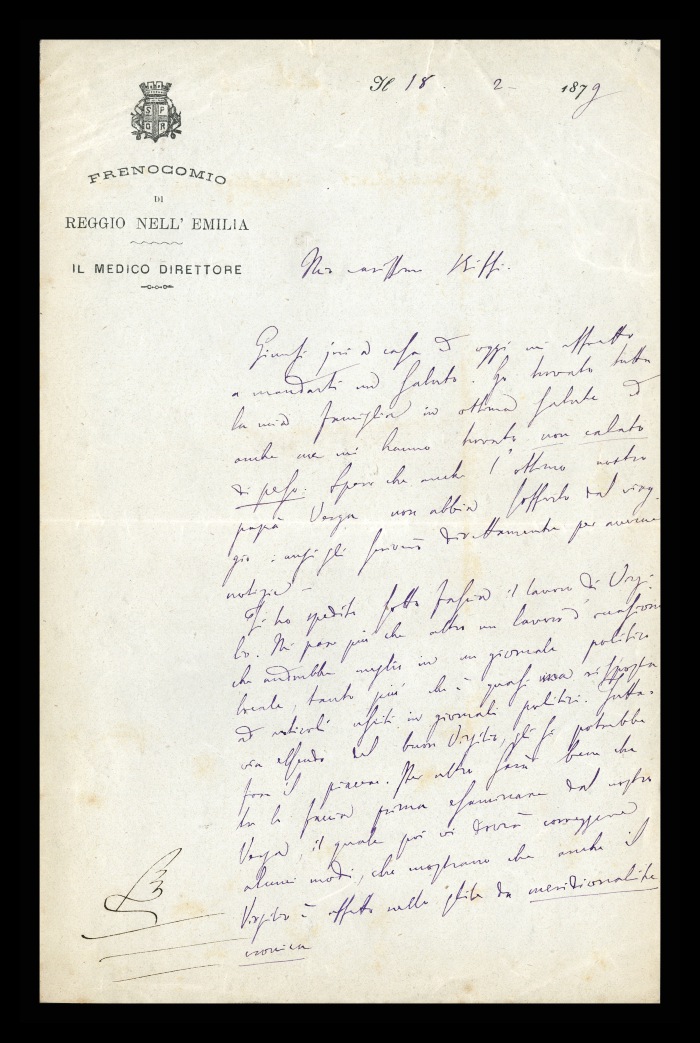 Il 18. 2- 1879
S P
Q R
FRENOCOMIO
DI
REGGIO NELL' EMILIA
IL MEDICO DIRETTORE
Mio carissimo Biffi.
Giunsi jeri a casa ed oggi mi affretto
a mandarti un saluto. Ho trovato tutta
la mia famiglia in ottima salute ed
anche me mi hanno trovato non calato
di peso. Spero che anche l'ottimo nostro
papà Verga non abbia sofferto dal viag-
gio: anzi gli scriverò direttamente per averne
notizie –
Ti ho spedito sotto fascia il lavoro di Virgi-
lio. Mi pare più che altro un lavoro d'occasione
che andrebbe meglio in un giornale politico
locale, tanto più che è quasi una risposta
ad articoli usciti in giornali politici. Tutta-
via essendo del buon Virgilio, gli si potrebbe
fare il piacere. Per altro sarà bene che
tu lo faccia prima esaminare dal nostro
Verga, il quale poi vi dovrà correggere
alcuni modi, che mostrano che anche il
Virgilio è affetto nello stile da meridionalite
cronica